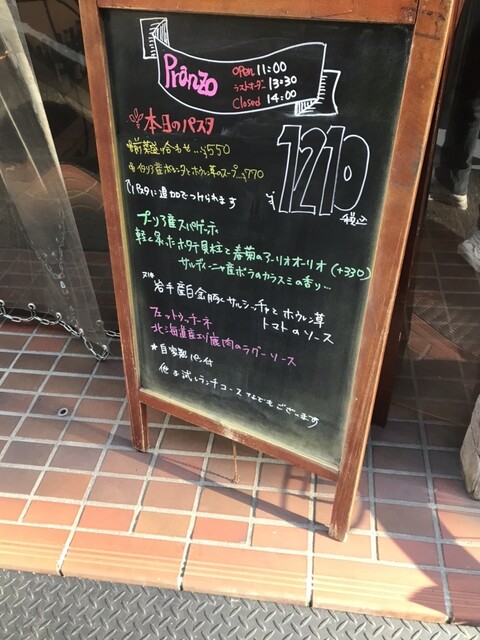 Pranzo
OPEN 11:00
ラストオーダー 13:30
Closed 14:00
本日のパスタ
1210
税込
前菜盛り合わせ…¥550
産ポレンタとホウレン草のスープ…¥770
パスタに追加でつけられます
プーリア産スパゲッティ
軽く炙ったホタテ貝柱と春菊のアーリオオーリオ (+330)
サルディーニャ産ボラのカラスミの香り…
又は
岩手産白金豚のサルシッチャとホウレン草
トマトのソース
フェットゥッチーネ
北海道産エゾ鹿肉のラグーソース
★自家製パン付
他お試しランチコースなどもございます